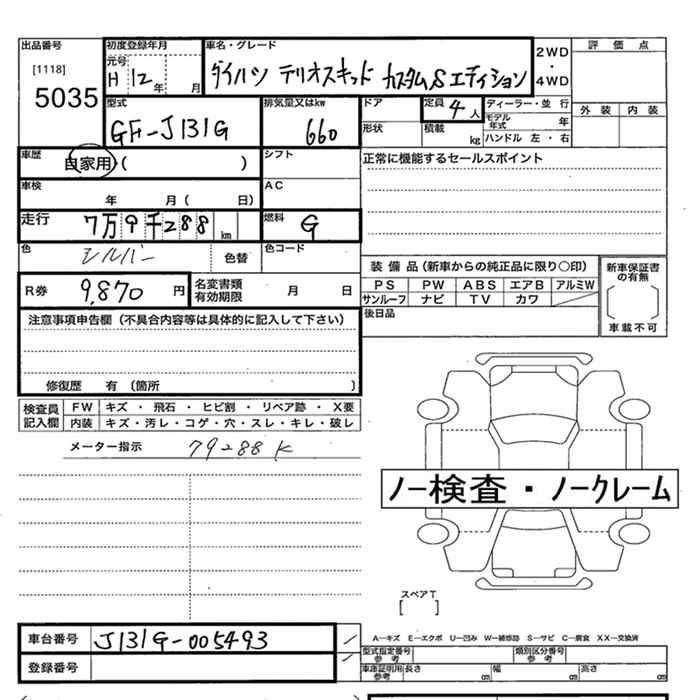 出品番号
[1118]
5035
初度登録年月
元号
H 12年 月
車名・グレード
ダイハツ テリオスキッド カスタムSエディション
2WD
・
4WD
評価点
外装 内装
型式
GF-J131G
排気量又はkw
660
ドア
定員 4人
ディーラー・並行
形状
積載 kg
モデル年式 年
ハンドル 左・右
車歴
自家用( )
シフト
正常に機能するセールスポイント
車検
年 月( 日)
AC
走行 7万9千288km
燃料 G
色 シルバー 色替
色コード
装備品(新車からの純正品に限り○印)
PS PW ABS エアB アルミW
サンルーフ ナビ TV カワ
新車保証書の有無
[ ]
車載不可
R券 9,870円
名変書類有効期限 月 日
後日品
注意事項申告欄(不具合内容等は具体的に記入して下さい)
修復歴 有〔箇所 〕
検査員記入欄
FW キズ・飛石・ヒビ割・リペア跡・X要
内装 キズ・汚レ・コゲ・穴・スレ・キレ・破レ
メーター指示 79288K
ノー検査・ノークレーム
スペアT
[ ]
車台番号 J131G-005493
登録番号
A―キズ E―エクボ U―凹み W―補修跡 S―サビ C―腐食 XX―交換済
型式指定番号 参考
類別区分番号 参考
車庫証明用 参考 長さ cm 幅 cm 高さ cm